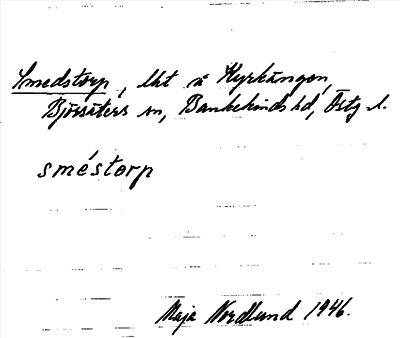 Smedstorp, lht å Kyrkängen,
Björsäters sn, Bankekinds hd, Östg. l.
sméstorp
Maja Nordlund 1946.